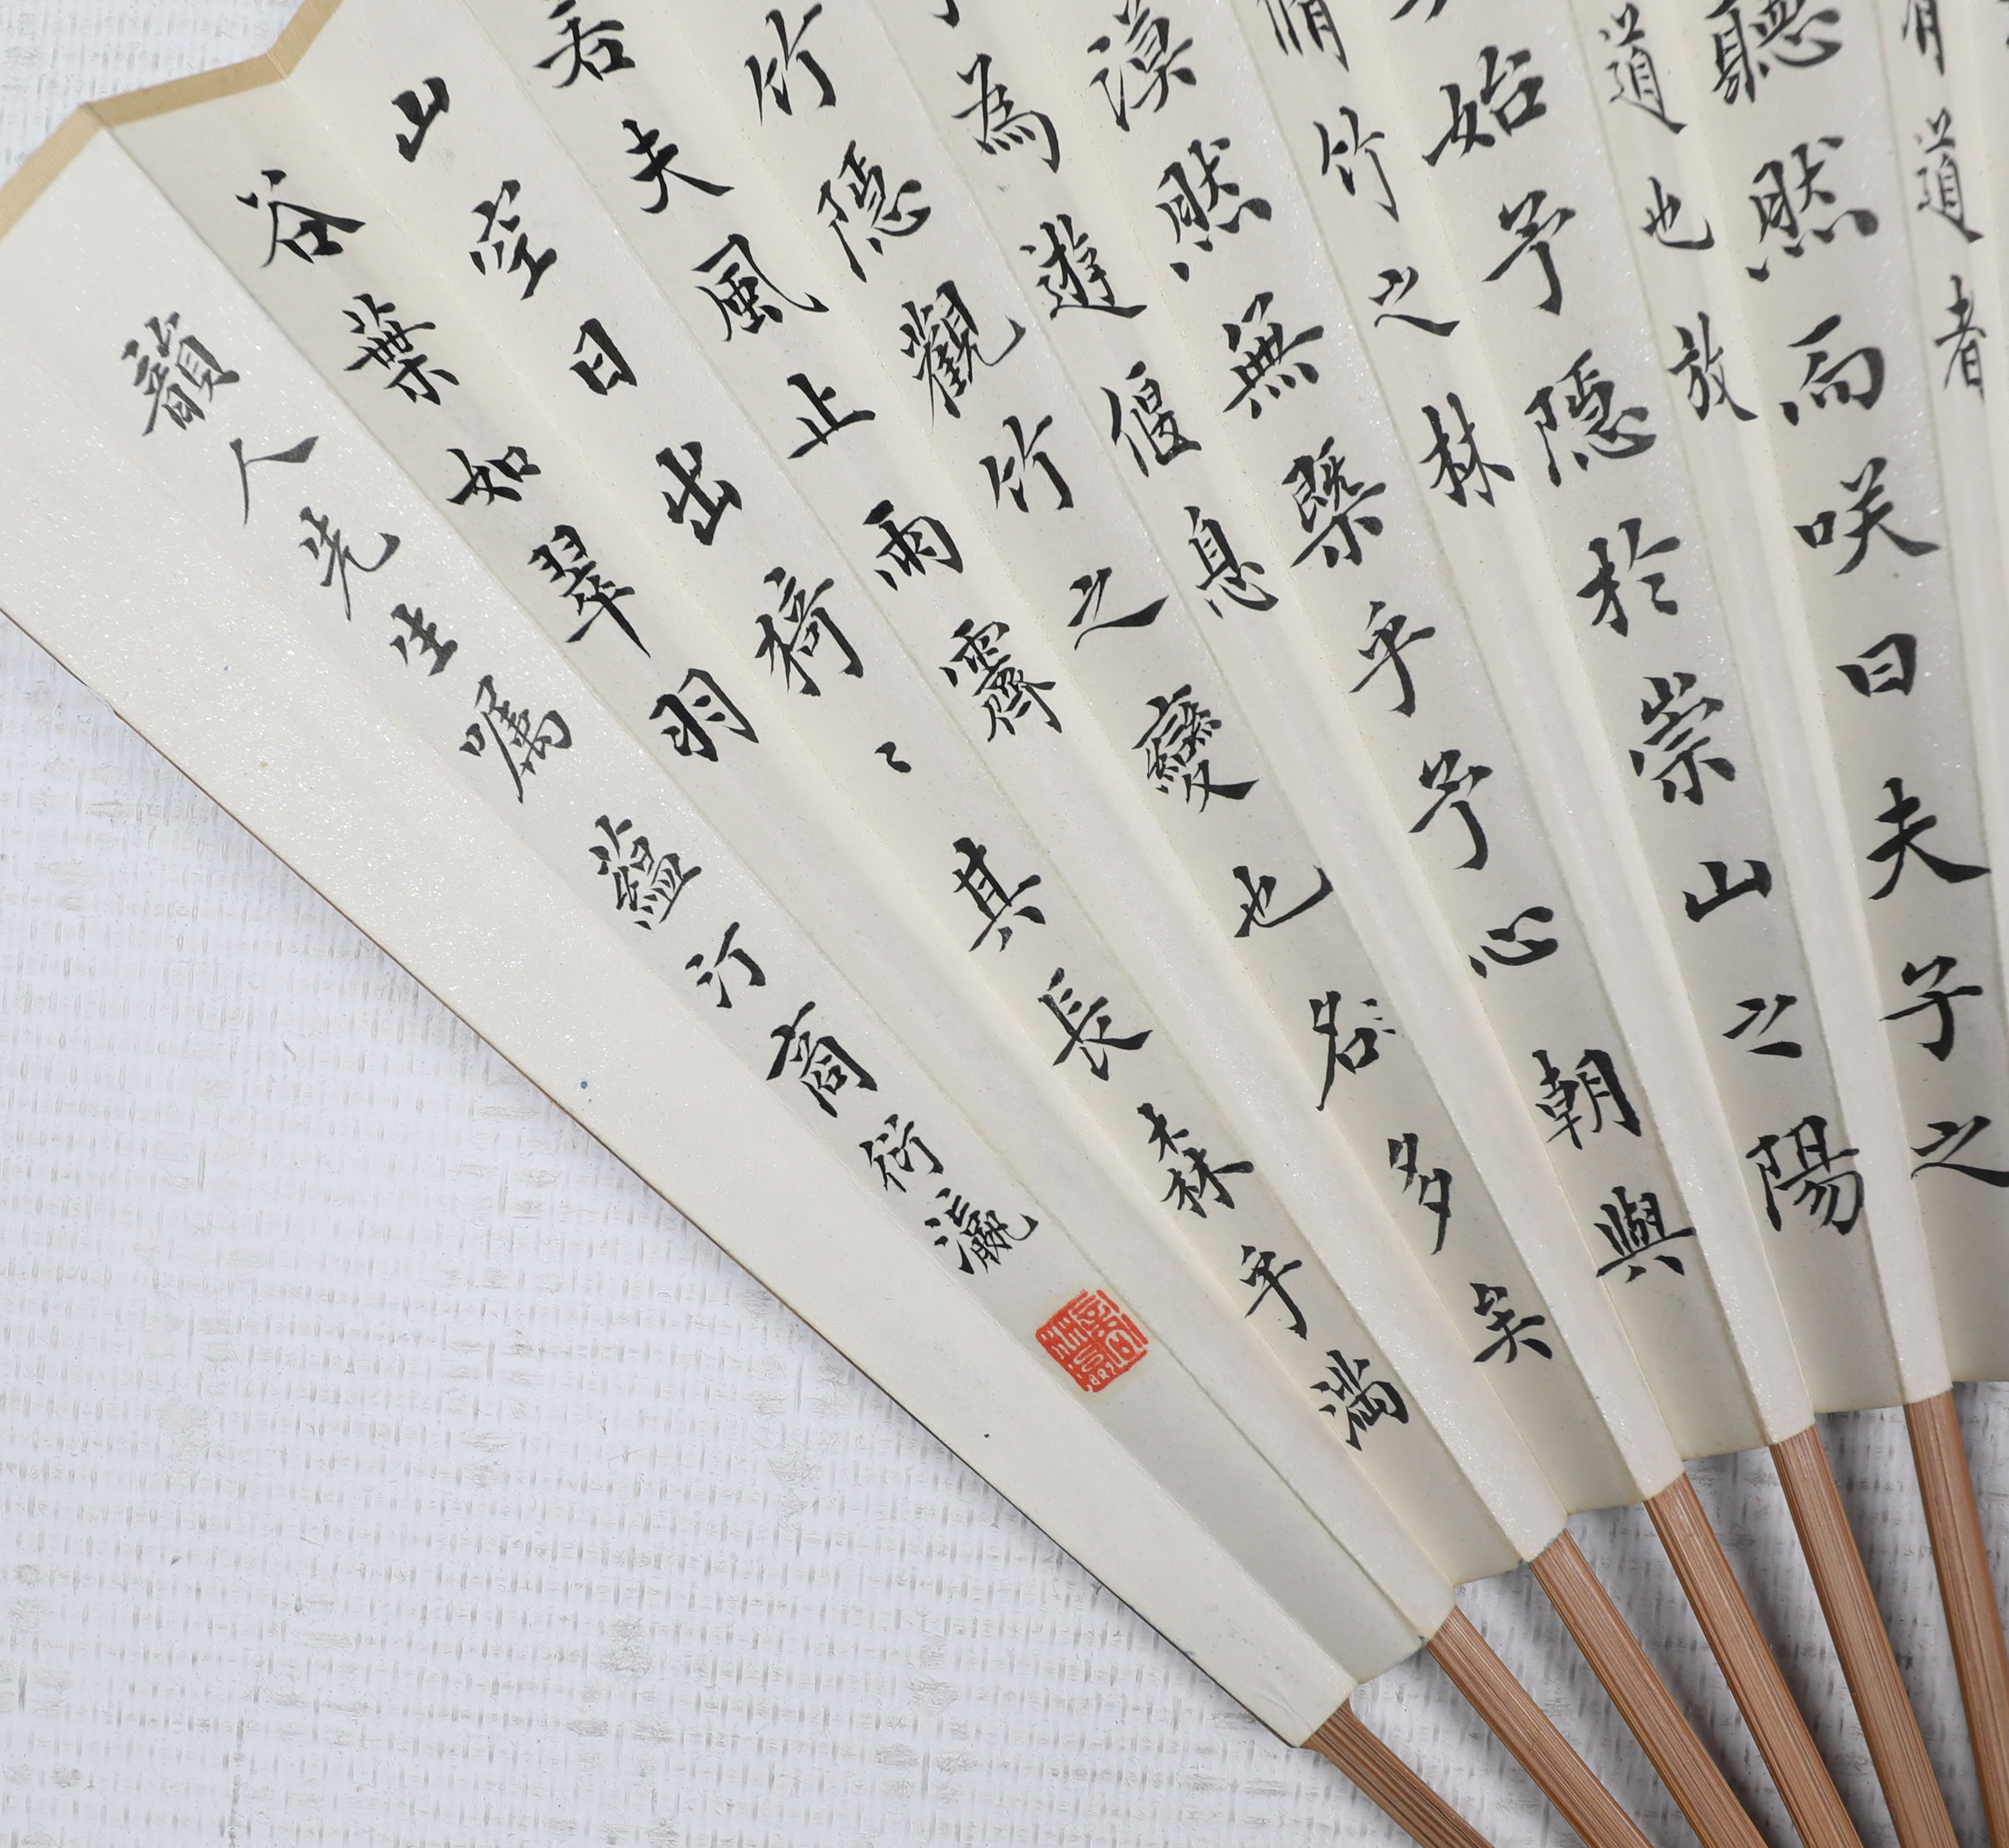 有道者
聽然而咲曰夫子之
道也放
始予隱於崇山之陽
脩竹之林
漠然無槩乎予心朝與
為遊偃息
竹隱觀竹之變也名多矣
若夫風止雨霽
山空日出猗〻其長森乎滿
谷葉如翠羽
韻人先生囑 蘊汀商衍瀛